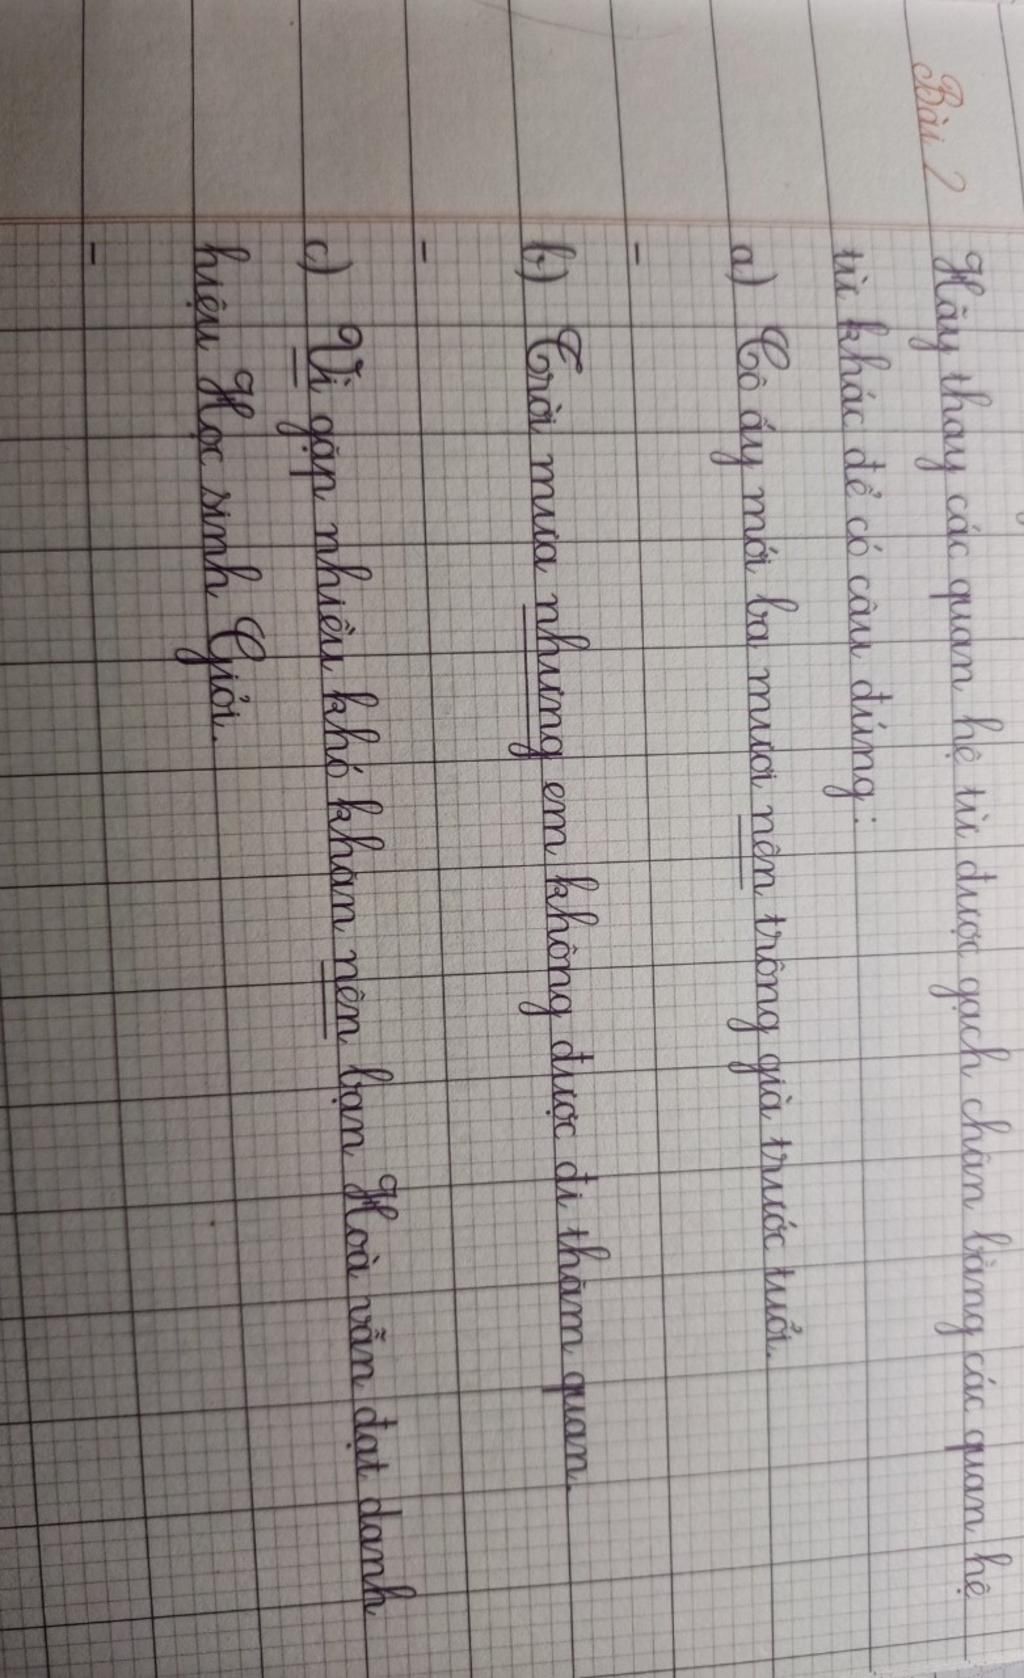 Bài 2 Hãy thay các quan hệ từ được gạch chân bằng các quan hệ
từ khác để có câu đúng:
a) Cô ấy mới ba mươi nên trông già trước tuổi.
-
b) Trời mưa nhưng em không được đi thăm quan.
-
c) Vì gặp nhiều khó khăn nên bạn Hoà vẫn đạt danh
hiệu Học sinh Giỏi.
-